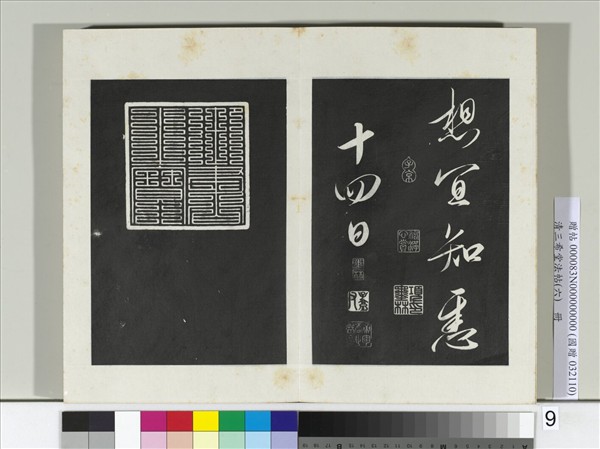 想宜知悉
十四日
贈帖 000083N000000000 (國贈 032110)
清三希堂法帖(六) 冊
9